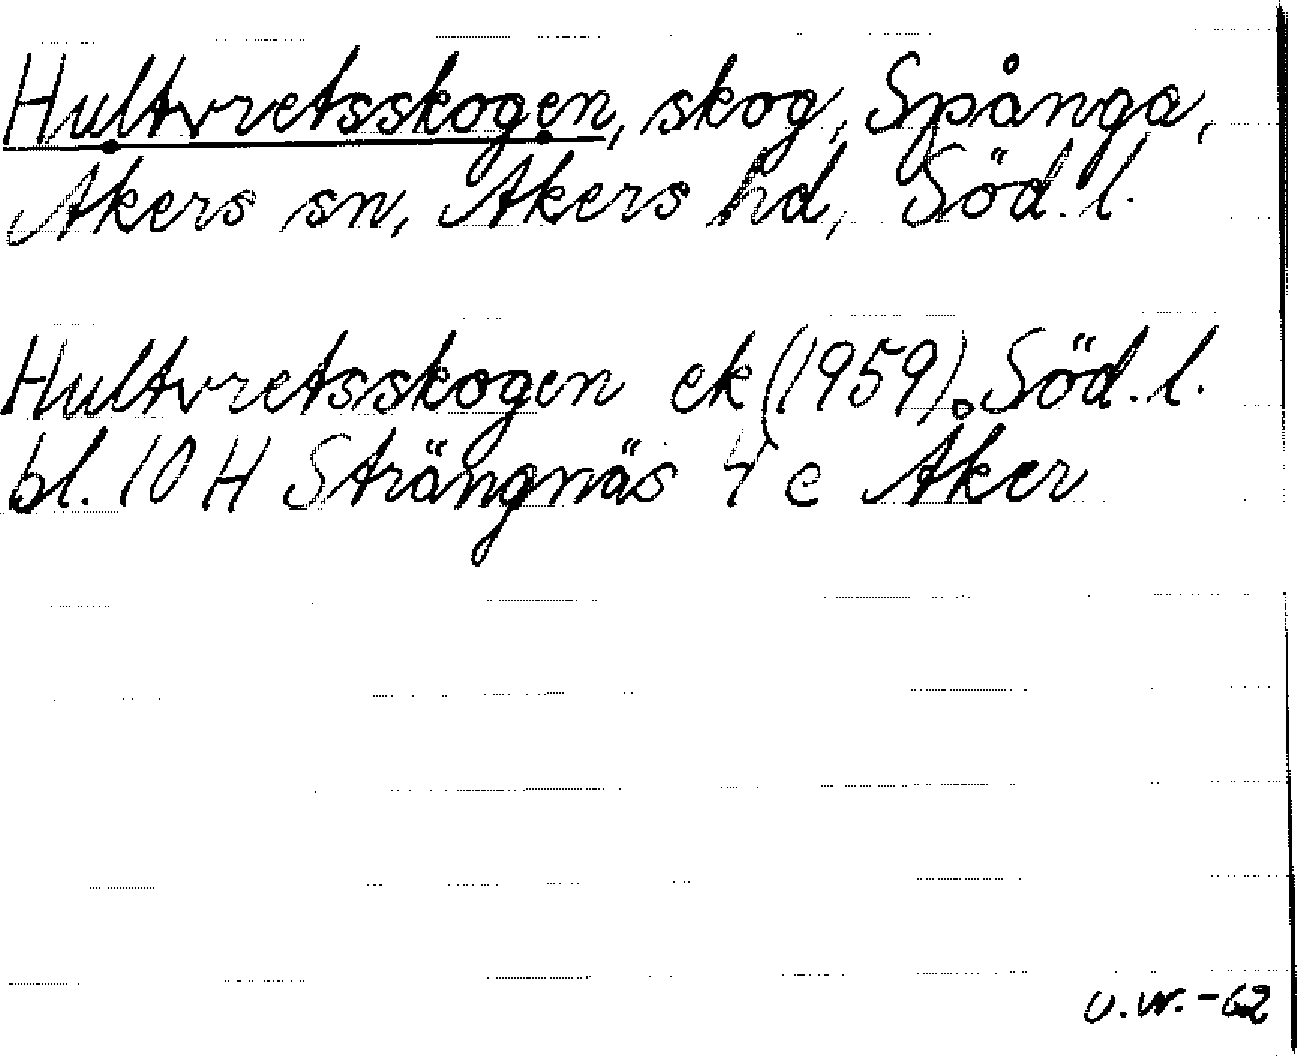 Hultvretsskogen, skog, Spånga,
Åkers sn, Åkers hd, Söd. l.
Hultvretsskogen ek (1959). Söd. l.
bl. 10 H Strängnäs 4 c Åker
U.W. -62